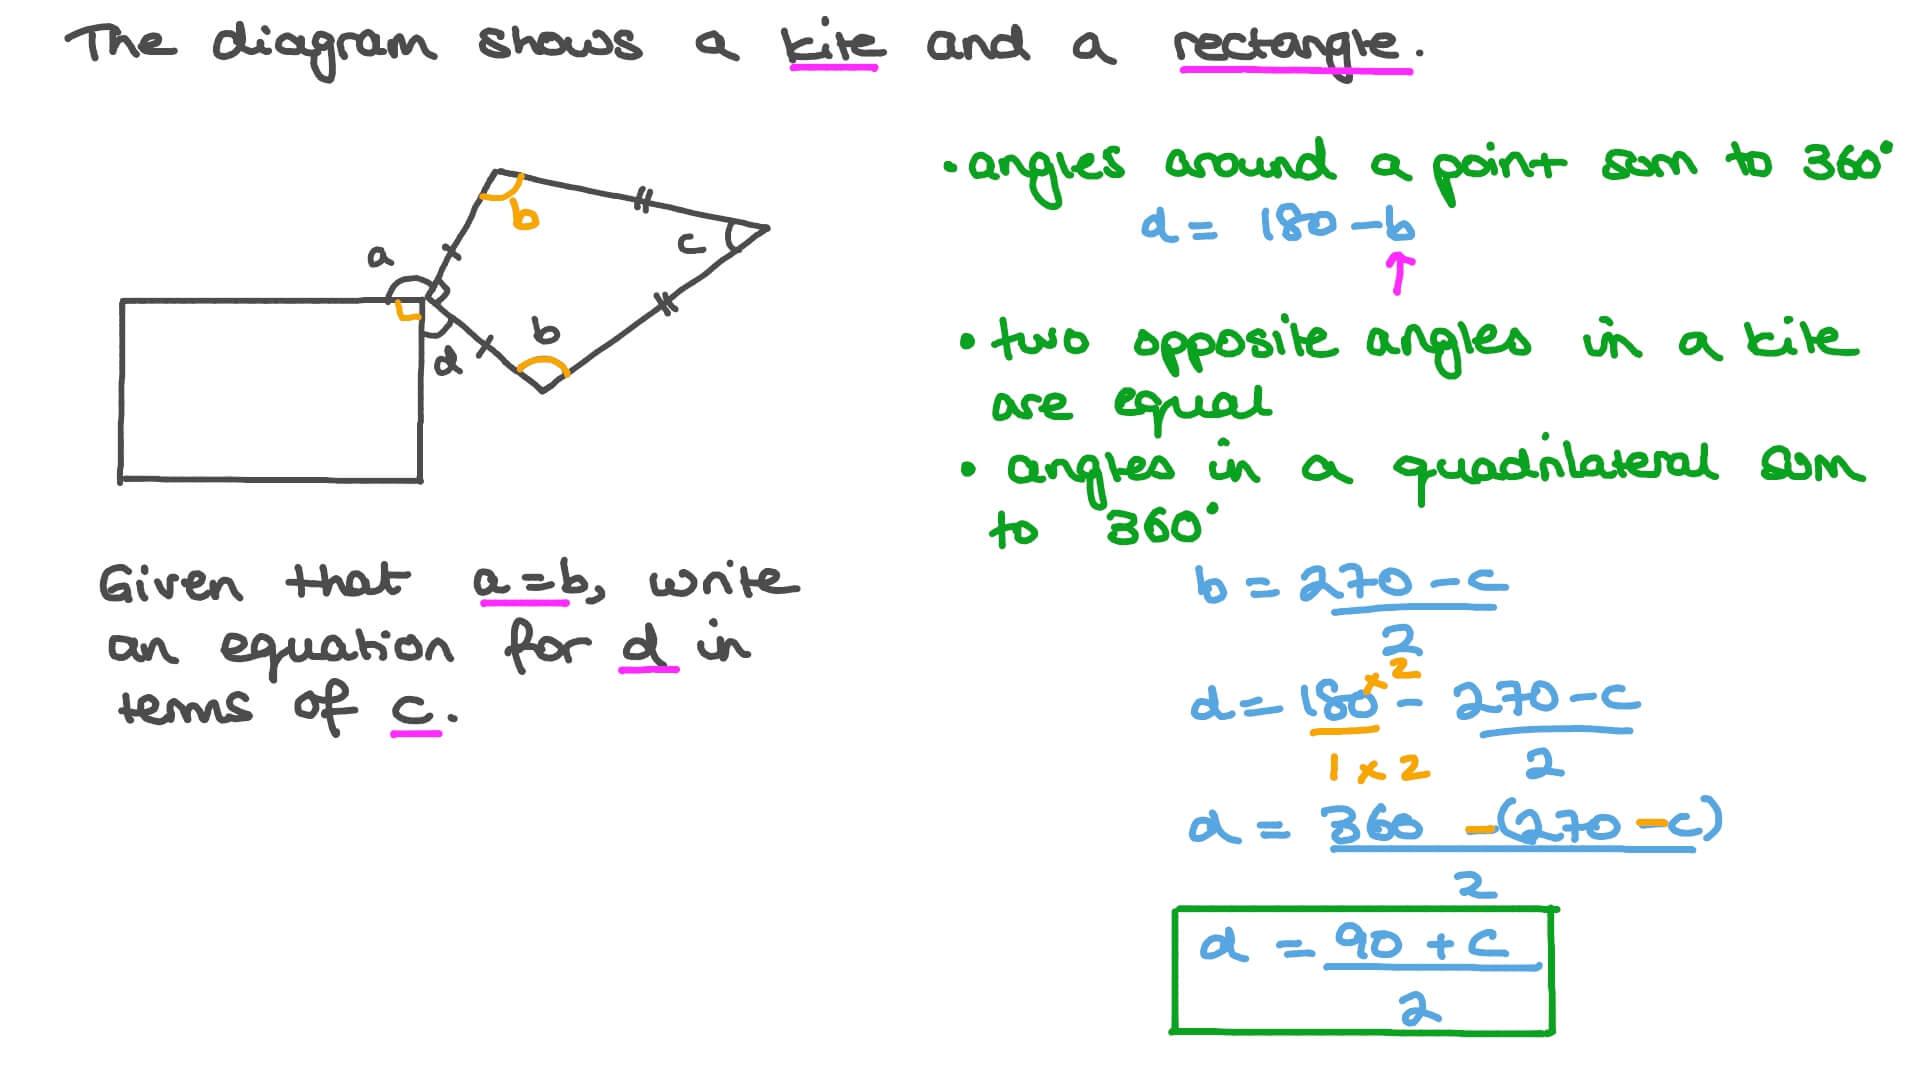 The diagram shows a kite and a rectangle.
a
b
c
b
d
Given that a = b, write
an equation for d in
terms of c.
• angles around a point sum to 360°
d = 180 - b
↑
• two opposite angles in a kite
are equal
• angles in a quadrilateral sum
to 360°
b = 270 - c
2
d = 180 × 2 - 270 - c
1 × 2 2
d = 360 - (270 - c)
2
d = 90 + c
2